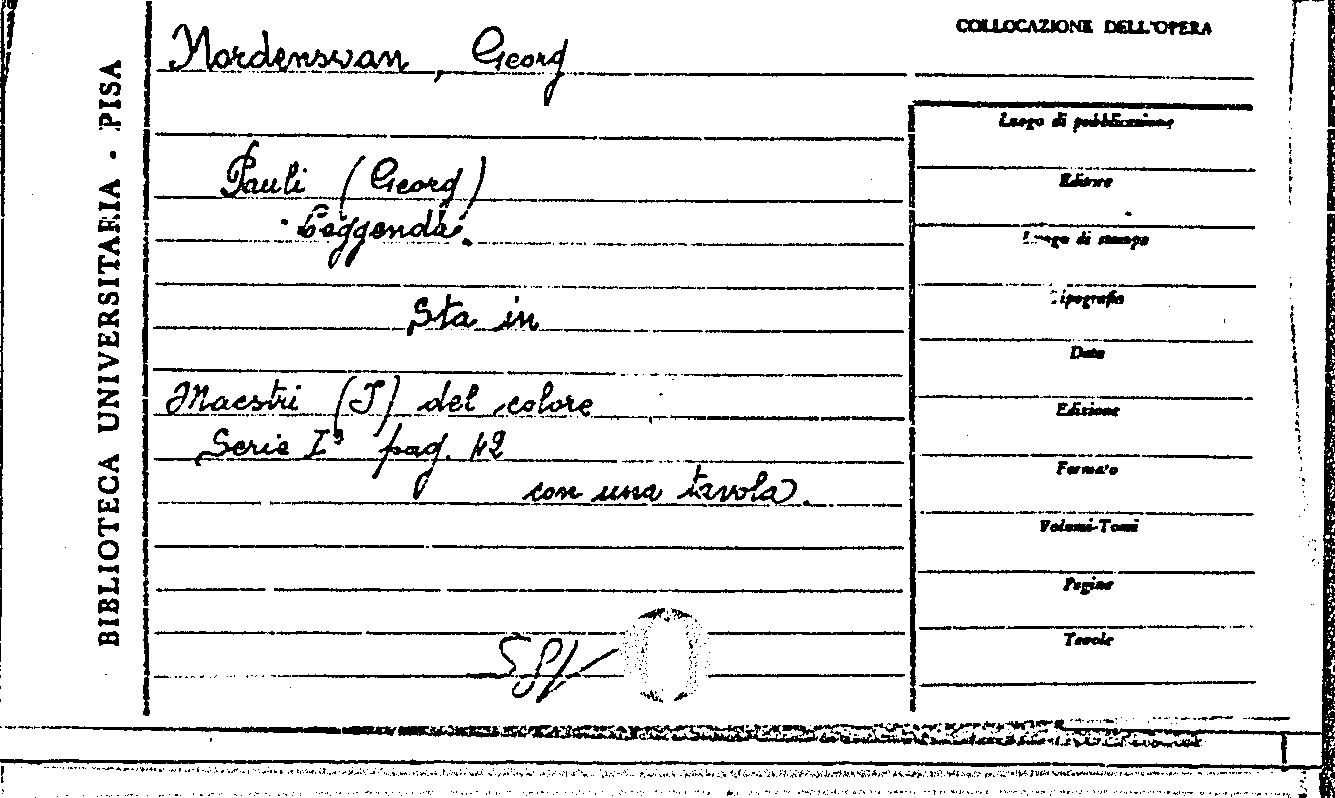 BIBLIOTECA UNIVERSITARIA - PISA
Nordensvan, Georg
Pauli (Georg)
Leggenda.
Sta in
Maestri (I) del colore
Serie Iª pag. 42
con una tavola.
COLLOCAZIONE DELL'OPERA
Luogo di pubblicazione
Editore
Luogo di stampa
Tipografia
Data
Edizione
Formato
Volumi-Tomi
Pagine
Tavole